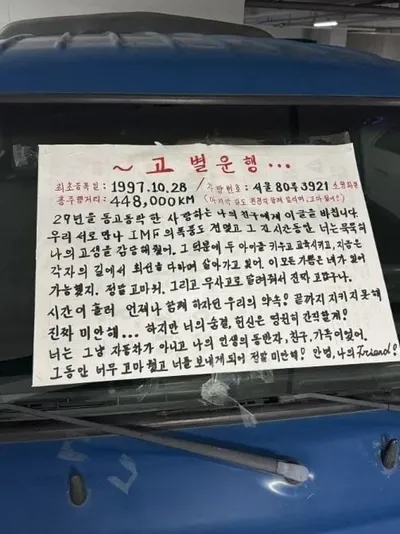 ~ 고별운행 ...
최초등록일 : 1997.10.28 / 차량번호 : 서울80두3921 소형화물
총주행거리 : 448,000KM
29년을 동고동락한 사랑하는 나의 친구에게 이 글을 바칩니다.
우리 서로 만나 IMF의 폭풍도 견뎠고 그 긴 시간동안 너는 묵묵히
나의 고생을 감당해줬어. 그 덕분에 두 아이를 키우고 교육시키고, 지금은
각자의 길에서 최선을 다하며 살아가고 있어. 이 모든 기쁨은 네가 있어
가능했지. 정말 고마워. 그리고 무사고로 달려줘서 진짜 고맙구나.
시간이 흘러 언제나 함께 하자던 우리의 약속! 끝까지 지키지 못해
진짜 미안해... 하지만 너의 숨결, 헌신은 영원히 간직할게!
너는 그냥 자동차가 아니고 나의 인생의 동반자, 친구, 가족이었어.
그동안 너무 고마웠고 너를 보내게 되어 정말 미안해! 안녕, 나의 Friend!